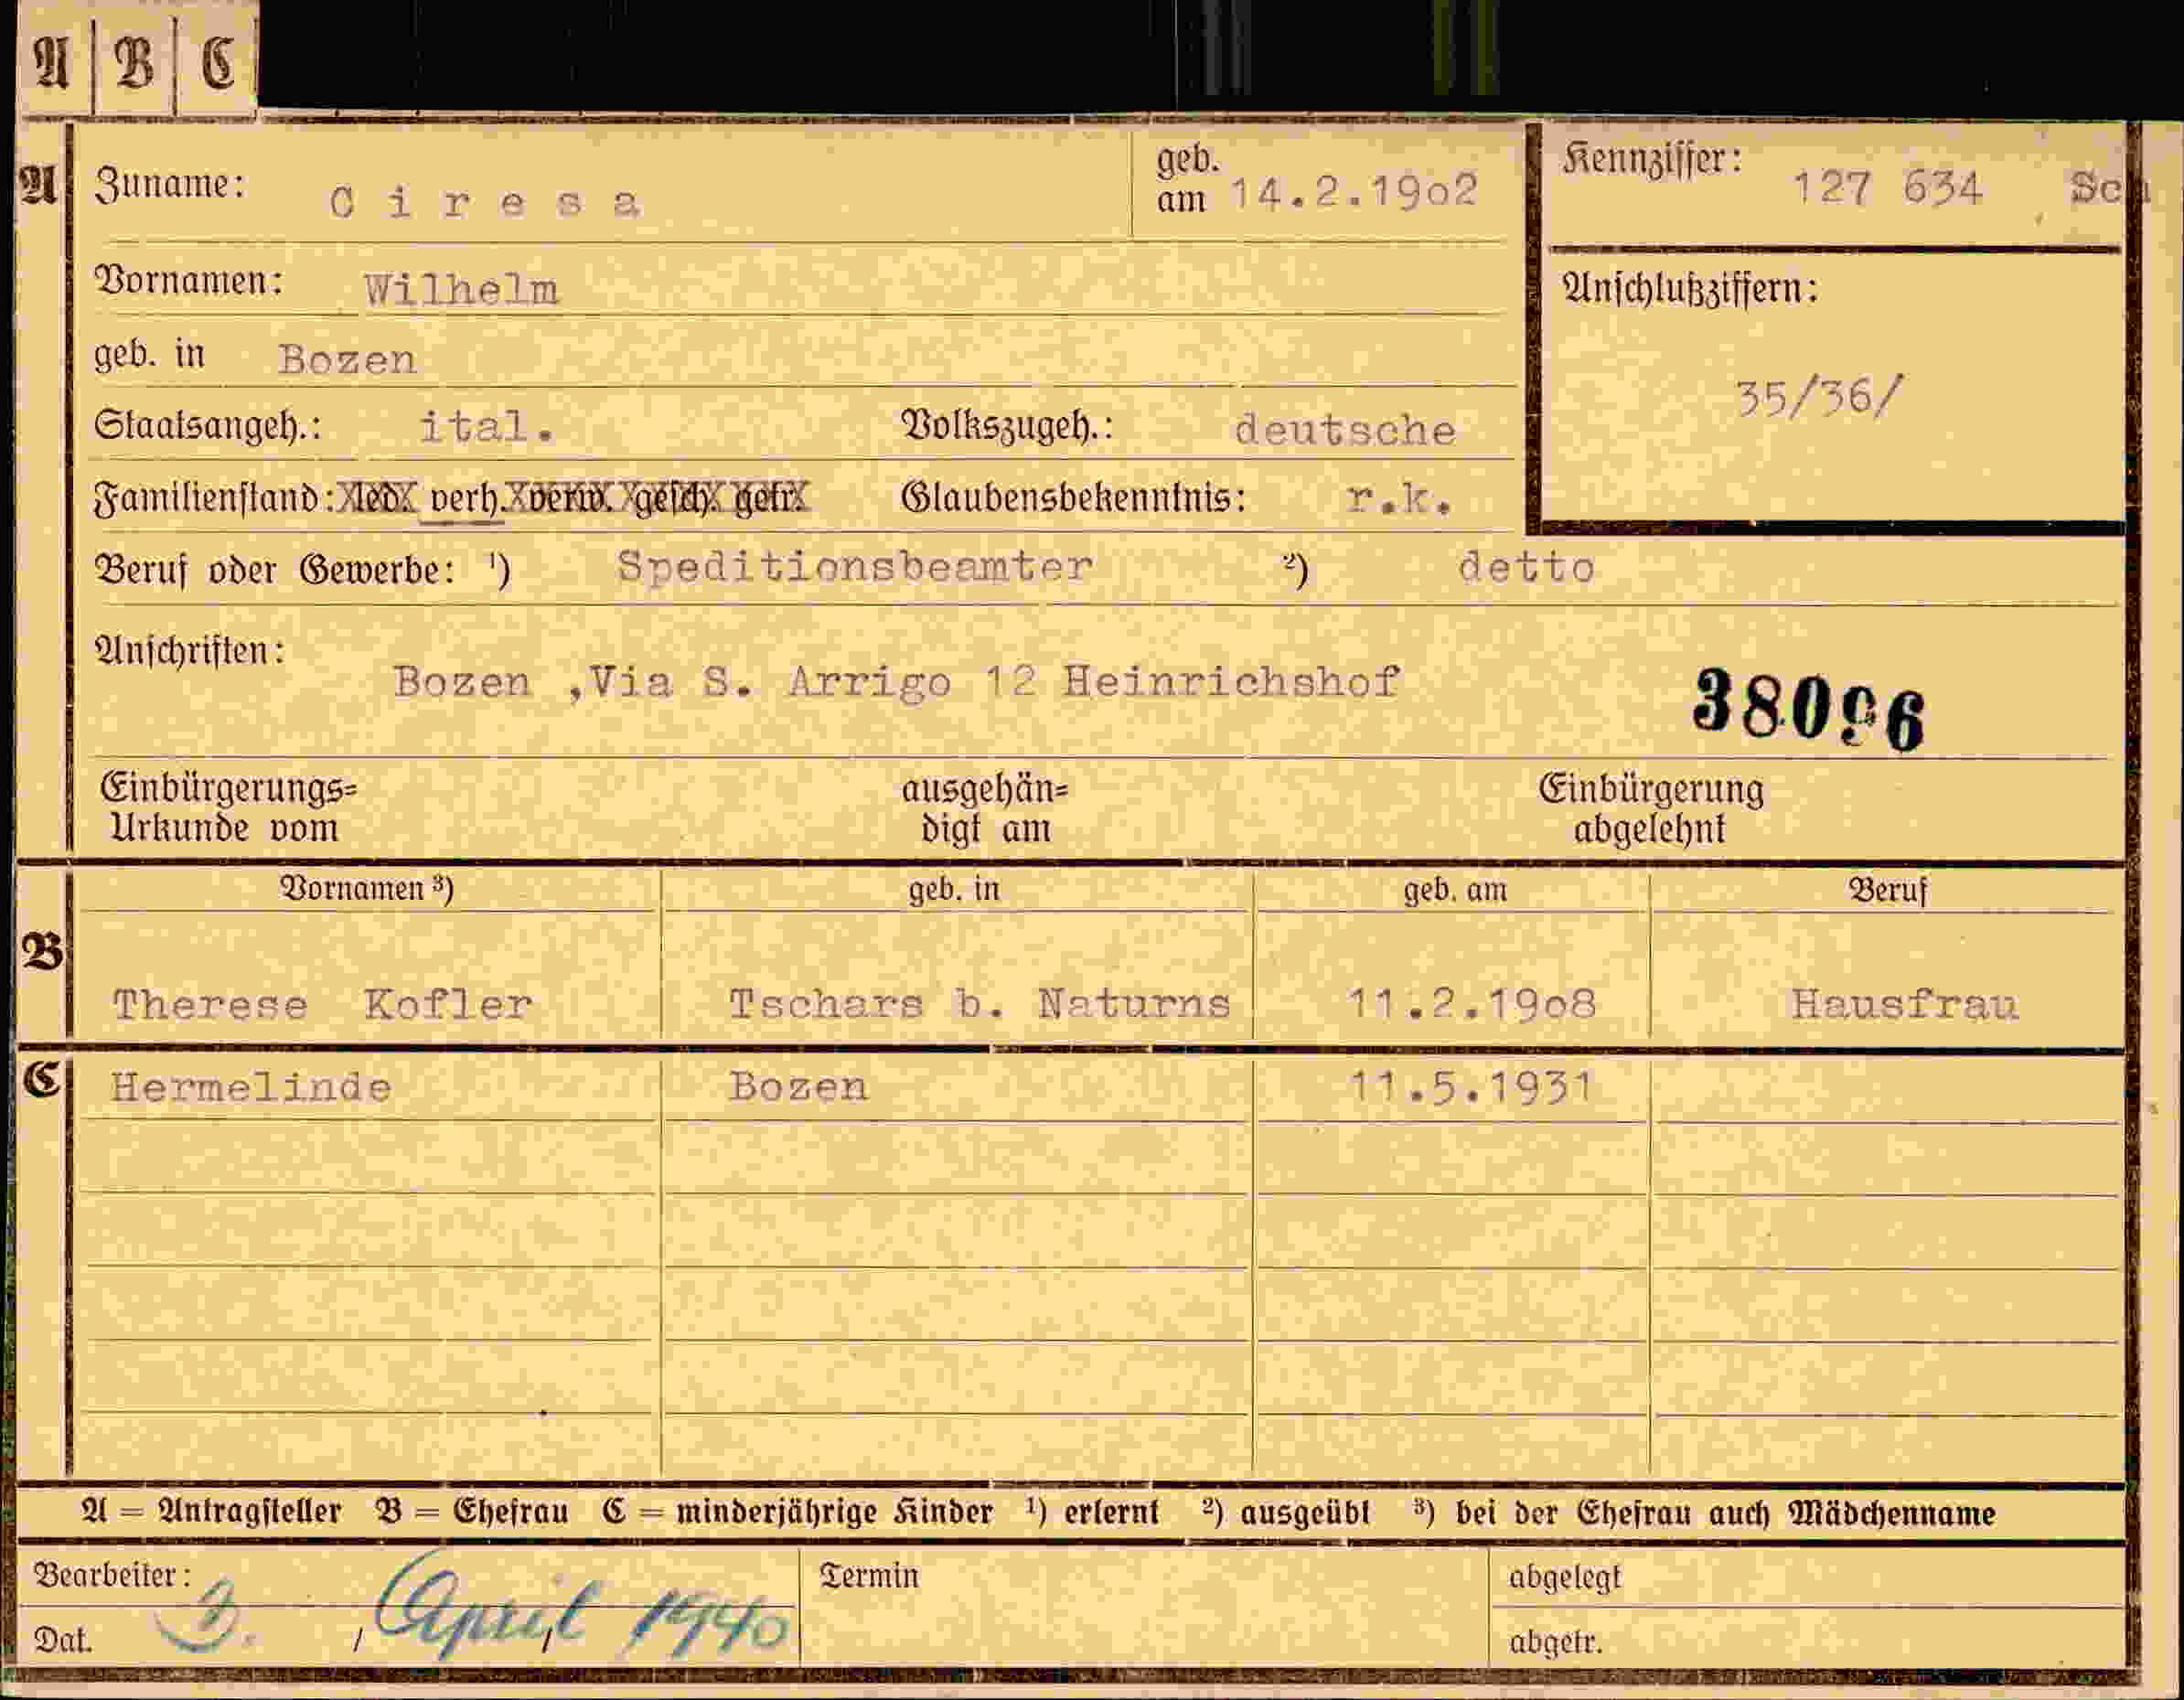 A B C
A Zuname: Ciresa geb. am 14.2.19o2 Kennziffer: 127 634 Sch
Vornamen: Wilhelm Anschlußziffern:
geb. in Bozen 35/36/
Staatsangeh.: ital. Volkszugeh.: deutsche
Familienstand: led. verh. verw. gesch. getr. Glaubensbekenntnis: r.k.
Beruf oder Gewerbe: ¹) Speditionsbeamter ²) detto
Anschriften:
Bozen ,Via S. Arrigo 12 Heinrichshof 38096
Einbürgerungs= ausgehän= Einbürgerung
Urkunde vom digt am abgelehnt
Vornamen ³) geb. in geb. am Beruf
B
Therese Kofler Tschars b. Naturns 11.2.19o8 Hausfrau
C Hermelinde Bozen 11.5.1931
A = Antragsteller B = Ehefrau C = minderjährige Kinder ¹) erlernt ²) ausgeübt ³) bei der Ehefrau auch Mädchenname
Bearbeiter: Termin abgelegt
Dat. 3. / April 1940 abgetr.